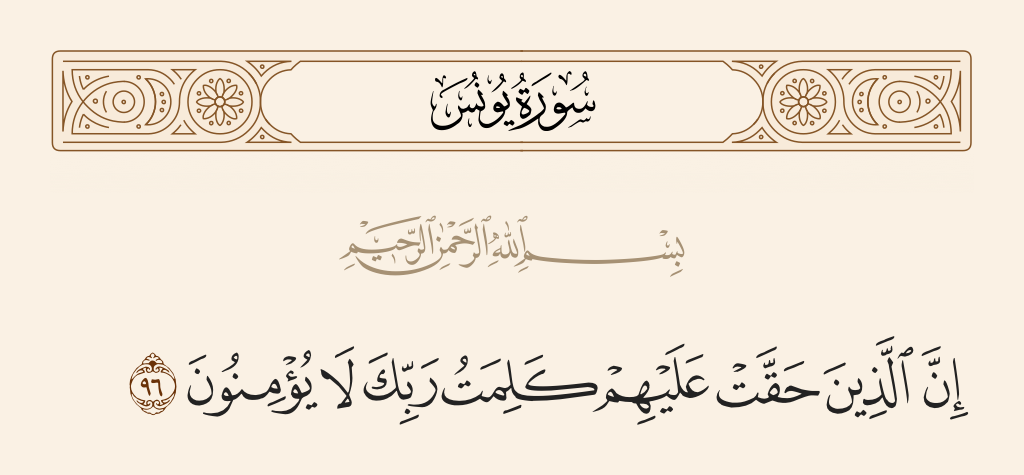 سُورَةُ يُونُسَ
بِسْمِ ٱللَّهِ ٱلرَّحْمَٰنِ ٱلرَّحِيمِ
إِنَّ ٱلَّذِينَ حَقَّتْ عَلَيْهِمْ كَلِمَتُ رَبِّكَ لَا يُؤْمِنُونَ ٩٦